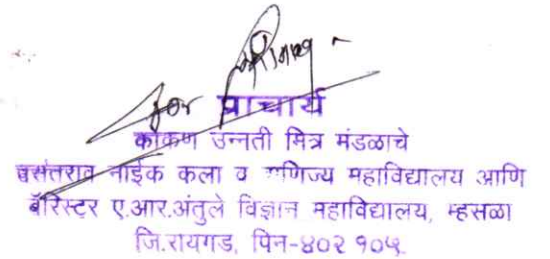 for प्राचार्य
कोकण उन्नती मित्र मंडळाचे
वसंतराव नाईक कला व वाणिज्य महाविद्यालय आणि
बॅरिस्टर ए.आर.अंतुले विज्ञान महाविद्यालय, म्हसळा
जि.रायगड, पिन-४०२ १०५